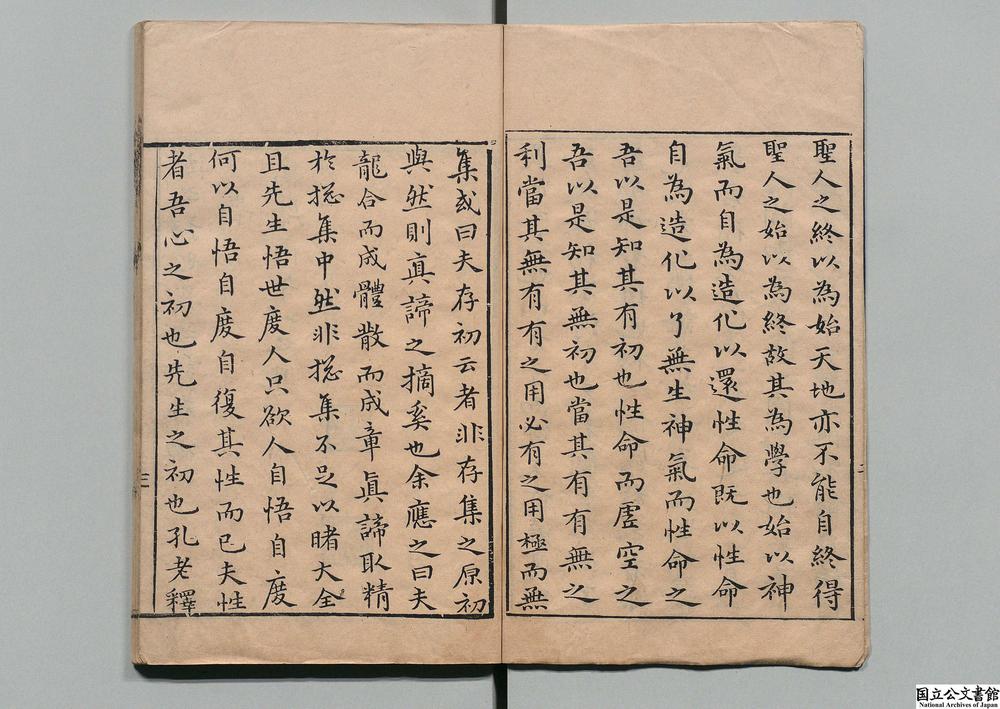 聖人之終以為始天地亦不能自終得
聖人之始以為終故其為學也始以神
氣而自為造化以還性命既以性命
自為造化以了無生神氣而性命之
吾以是知其有初也性命而虛空之
吾以是知其無初也當其有有無之
利當其無有有之用必有之用極而無
二
集或曰夫存初云者非存集之原初
與然則真諦之摘奚也余應之曰夫
龍合而成體散而成章真諦取精
於揔集中然非揔集不足以睹大全
且先生悟世度人只欲人自悟自度
何以自悟自度自復其性而已夫性
者吾心之初也先生之初也孔老釋
三
国立公文書館
National Archives of Japan